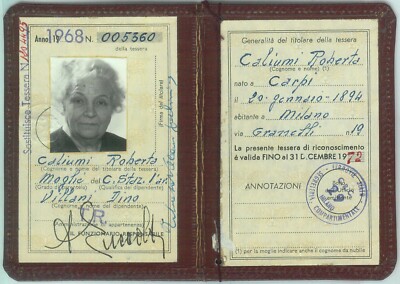 Sostituisce Tessera N.
Anno 1968 N. 005360
della tessera
(Firma del titolare)
Caliumi Roberta
(Cognome e nome del titolare della tessera)
Moglie del C. Staz.
(Qualifica del dipendente)
Villani Dino
(Cognome e nome del dipendente)
CR.
Amministrazione
appartenenza
IL FUNZIONARIO RESPONSABILE
Generalità del titolare della tessera
Caliumi Roberta
(Cognome e nome) (1)
nato a Carpi
il 20 gennaio 1894
abitante a Milano
via Gramelli n 19
La presente tessera di riconoscimento
è valida FINO al 31 DICEMBRE 1972
ANNOTAZIONI
COMPARTIMENTALE
MILANO
(1) per la moglie indicare anche il cognome da nubile